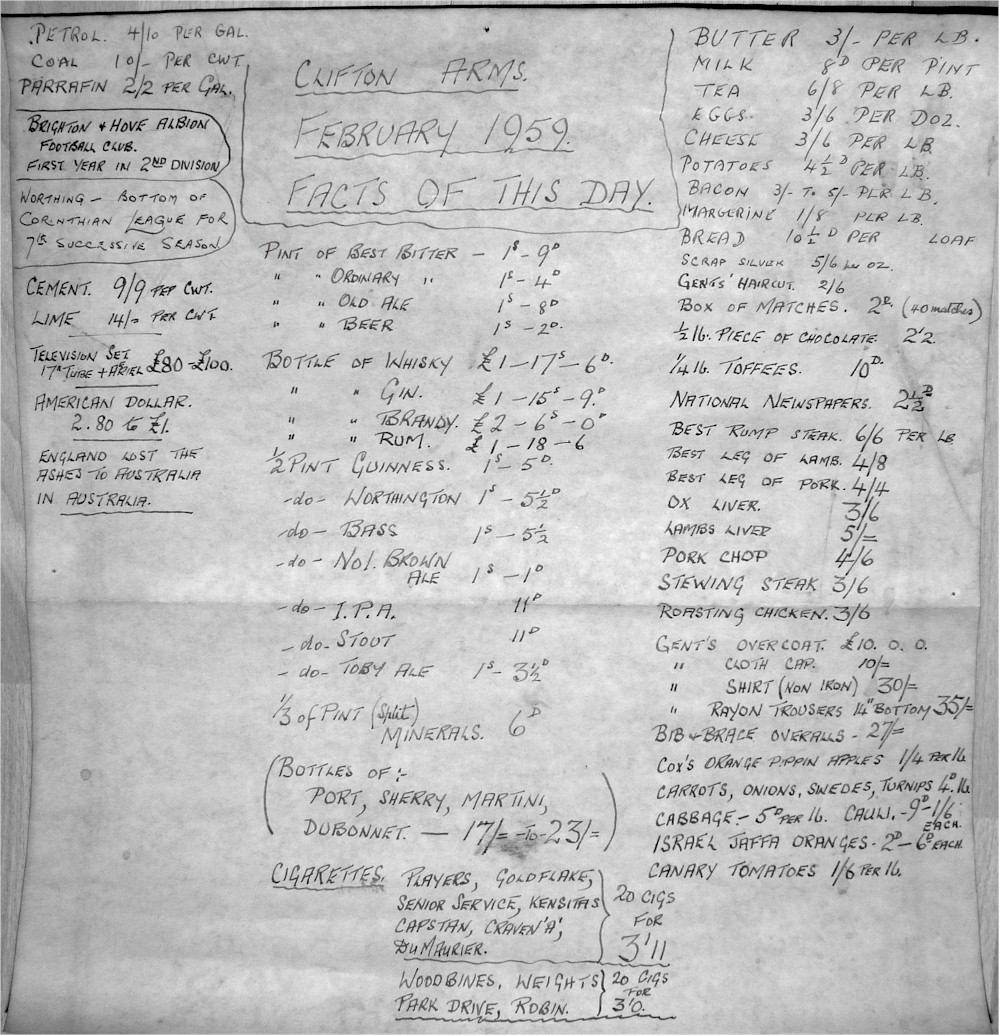 PETROL. 4/10 PER GAL.
COAL 10/- PER CWT
PARRAFIN 2/2 PER GAL.
BRIGHTON & HOVE ALBION
FOOTBALL CLUB.
FIRST YEAR IN 2ND DIVISION
WORTHING - BOTTOM OF
CORINTHIAN LEAGUE FOR
7th SUCCESSIVE SEASON
CEMENT. 9/9 PER CWT.
LIME 14/= PER CWT
TELEVISION SET
17" TUBE + AERIEL £80-£100.
AMERICAN DOLLAR.
2.80 to £1.
ENGLAND LOST THE
ASHES TO AUSTRALIA
IN AUSTRALIA.
CLIFTON ARMS.
FEBRUARY 1959.
FACTS OF THIS DAY.
PINT OF BEST BITTER - 1S-9D
" " ORDINARY " 1S-4D
" " OLD ALE 1S-8D
" " BEER 1S-2D.
BOTTLE OF WHISKY £1-17S-6D.
" " GIN. £1-15S-9.D
" " BRANDY. £2-6S-0D
" " RUM. £1-18-6
1/2 PINT GUINNESS. 1S-5D.
-do- WORTHINGTON 1S-5½D
-do- BASS 1S-5½
-do- No1. BROWN
ALE 1S-1D
-do- I.P.A. 11D
-do- STOUT 11D
-do- TOBY ALE 1S-3½D
1/3 of PINT (Split)
MINERALS. 6D
(BOTTLES OF :-
PORT, SHERRY, MARTINI,
DUBONNET. — 17/= -To- 23/=)
CIGARETTES. PLAYERS, GOLDFLAKE,
SENIOR SERVICE, KENSITAS
CAPSTAN, CRAVEN'A',
DU MAURIER.
20 CIGS
FOR
3'11
WOODBINES, WEIGHTS
PARK DRIVE, ROBIN.
20 CIGS
FOR
3'0.
BUTTER 3/- PER LB.
MILK 8D PER PINT
TEA 6/8 PER LB.
EGGS. 3/6 PER DOZ.
CHEESE 3/6 PER LB.
POTATOES 4½D PER LB.
BACON 3/- To 5/- PER LB.
MARGERINE 1/8 PER LB.
BREAD 10½D PER LOAF
SCRAP SILVER 5/6 OZ.
GENTS' HAIRCUT. 2/6
BOX OF MATCHES. 2D. (40 matches)
½ lb. PIECE OF CHOCOLATE. 2'2
¼ lb. TOFFEES. 10D.
NATIONAL NEWSPAPERS. 2½D
BEST RUMP STEAK. 6/6 PER LB
BEST LEG OF LAMB. 4/8
BEST LEG OF PORK. 4/4
OX LIVER. 3/6
LAMBS LIVER 5/=
PORK CHOP 4/6
STEWING STEAK 3/6
ROASTING CHICKEN. 3/6
GENT'S OVERCOAT. £10. 0. 0.
" CLOTH CAP. 10/=
" SHIRT (NON IRON) 30/=
" RAYON TROUSERS 14" BOTTOM 35/=
BIB & BRACE OVERALLS - 27/=
COX'S ORANGE PIPPIN APPLES 1/4 PER lb
CARROTS, ONIONS, SWEDES, TURNIPS 4D. lb
CABBAGE - 5D PER lb. CAULI. - 9D-1/6
EACH.
ISRAEL JAFFA ORANGES - 2D-6D EACH.
CANARY TOMATOES 1/6 PER lb.